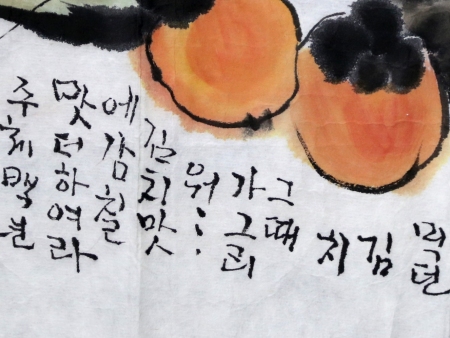 먹던
김
치
그때
가그리
워...
김치맛
에감칠
맛더하여라